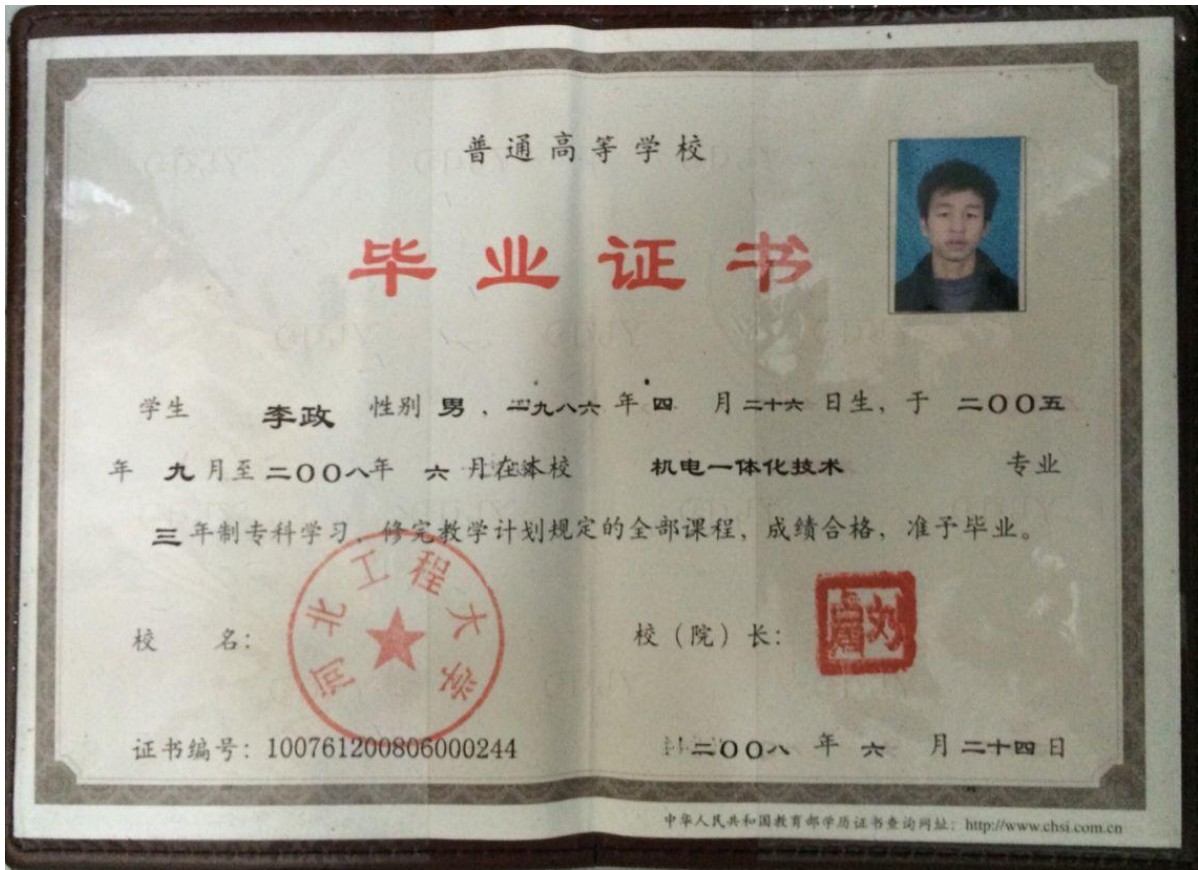 普通高等学校
毕业证书
学生 李政 性别 男，一九八六年 四 月 二十六 日生，于 二〇〇五
年 九 月至 二〇〇八年 六 月在本校 机电一体化技术 专业
三 年制专科学习，修完教学计划规定的全部课程，成绩合格，准予毕业。
河北工程大学
校 名：
校（院）长：
证书编号：100761200806000244
二〇〇八 年 六 月 二十四 日
中华人民共和国教育部学历证书查询网址：http://www.chsi.com.cn